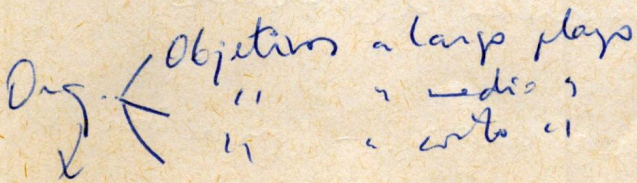 Objetivos a largo plazo
Org. " " medio "
" " corto "